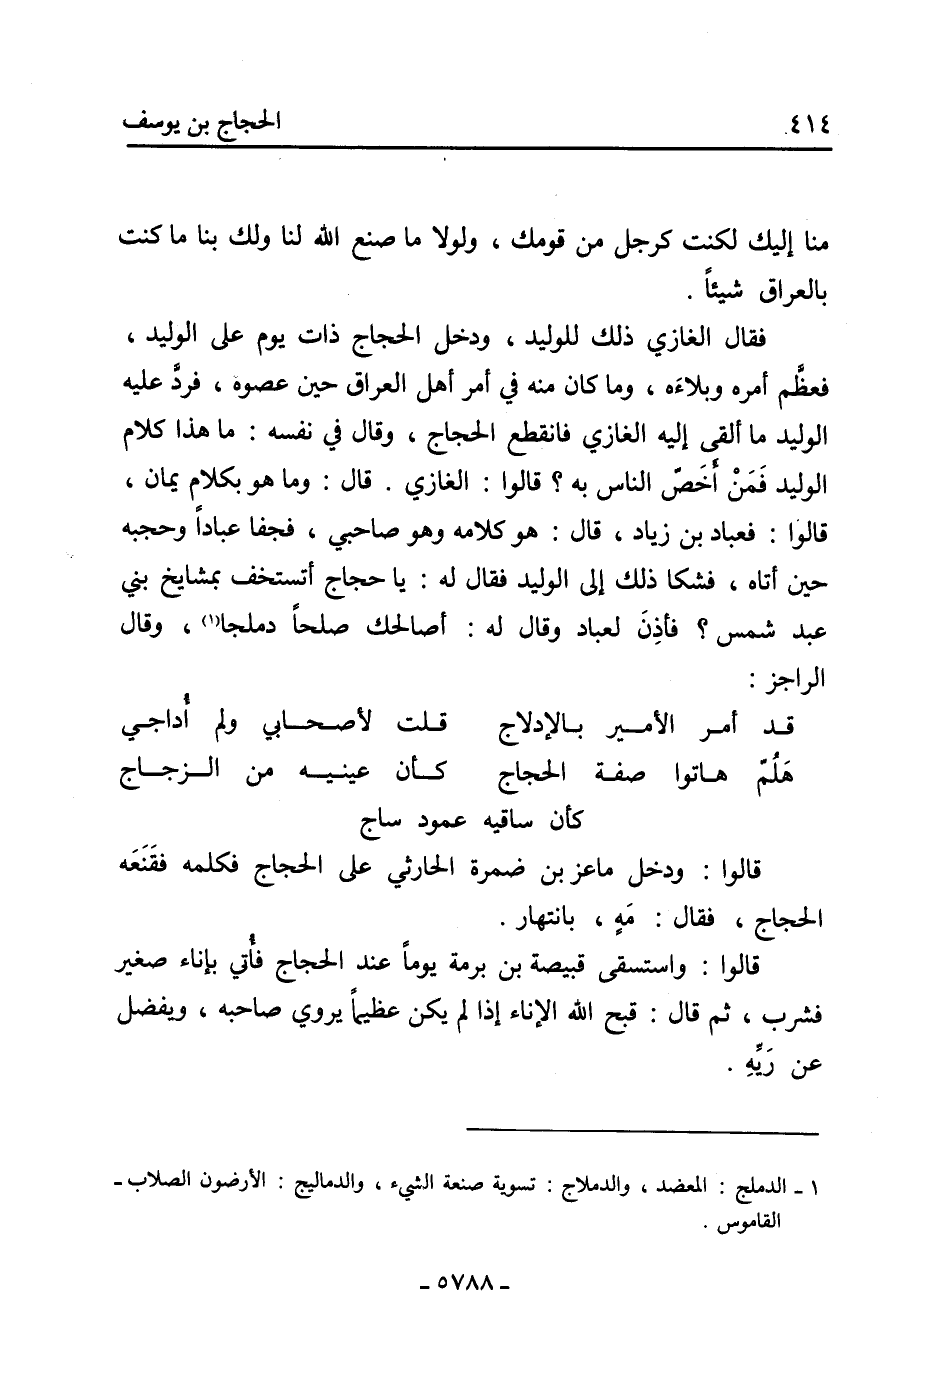 ٤١٤ الحجاج بن يوسف
منا إليك لكنت كرجل من قومك ، ولولا ما صنع الله لنا ولك بنا ما كنت
بالعراق شيئاً .
فقال الغازي ذلك للوليد ، ودخل الحجاج ذات يوم على الوليد ،
فعظَّم أمره وبلاءَه ، وما كان منه في أمر أهل العراق حين عصوه ، فردَّ عليه
الوليد ما ألقى إليه الغازي فانقطع الحجاج ، وقال في نفسه : ما هذا كلام
الوليد فَمَنْ أَخَصّ الناس به ؟ قالوا : الغازي . قال : وما هو بكلام يمان ،
قالوا : فعباد بن زياد ، قال : هو كلامه وهو صاحبي ، فجفا عباداً وحجبه
حين أتاه ، فشكا ذلك إلى الوليد فقال له : يا حجاج أتستخف بمشايخ بني
عبد شمس ؟ فأذِنَ لعباد وقال له : أصالحك صلحاً دملجا(١) ، وقال
الراجز :
قد أمر الأمير بالإدلاج قلت لأصحابي ولم أُداجي
هَلُمّ هاتوا صفة الحجاج كأن عينيه من الزجاج
كأن ساقيه عمود ساج
قالوا : ودخل ماعز بن ضمرة الحارثي على الحجاج فكلمه فقَنَعَه
الحجاج ، فقال : مَهٍ ، بانتهار .
قالوا : واستسقى قبيصة بن برمة يوماً عند الحجاج فأُتي بإناء صغير
فشرب ، ثم قال : قبح الله الإناء إذا لم يكن عظيماً يروي صاحبه ، ويفضل
عن رَيِّهِ .
١ ـ الدملج : المعضد ، والدملاج : تسوية صنعة الشيء ، والدماليج : الأرضون الصلاب ـ
القاموس .
ـ ٥٧٨٨ ـ